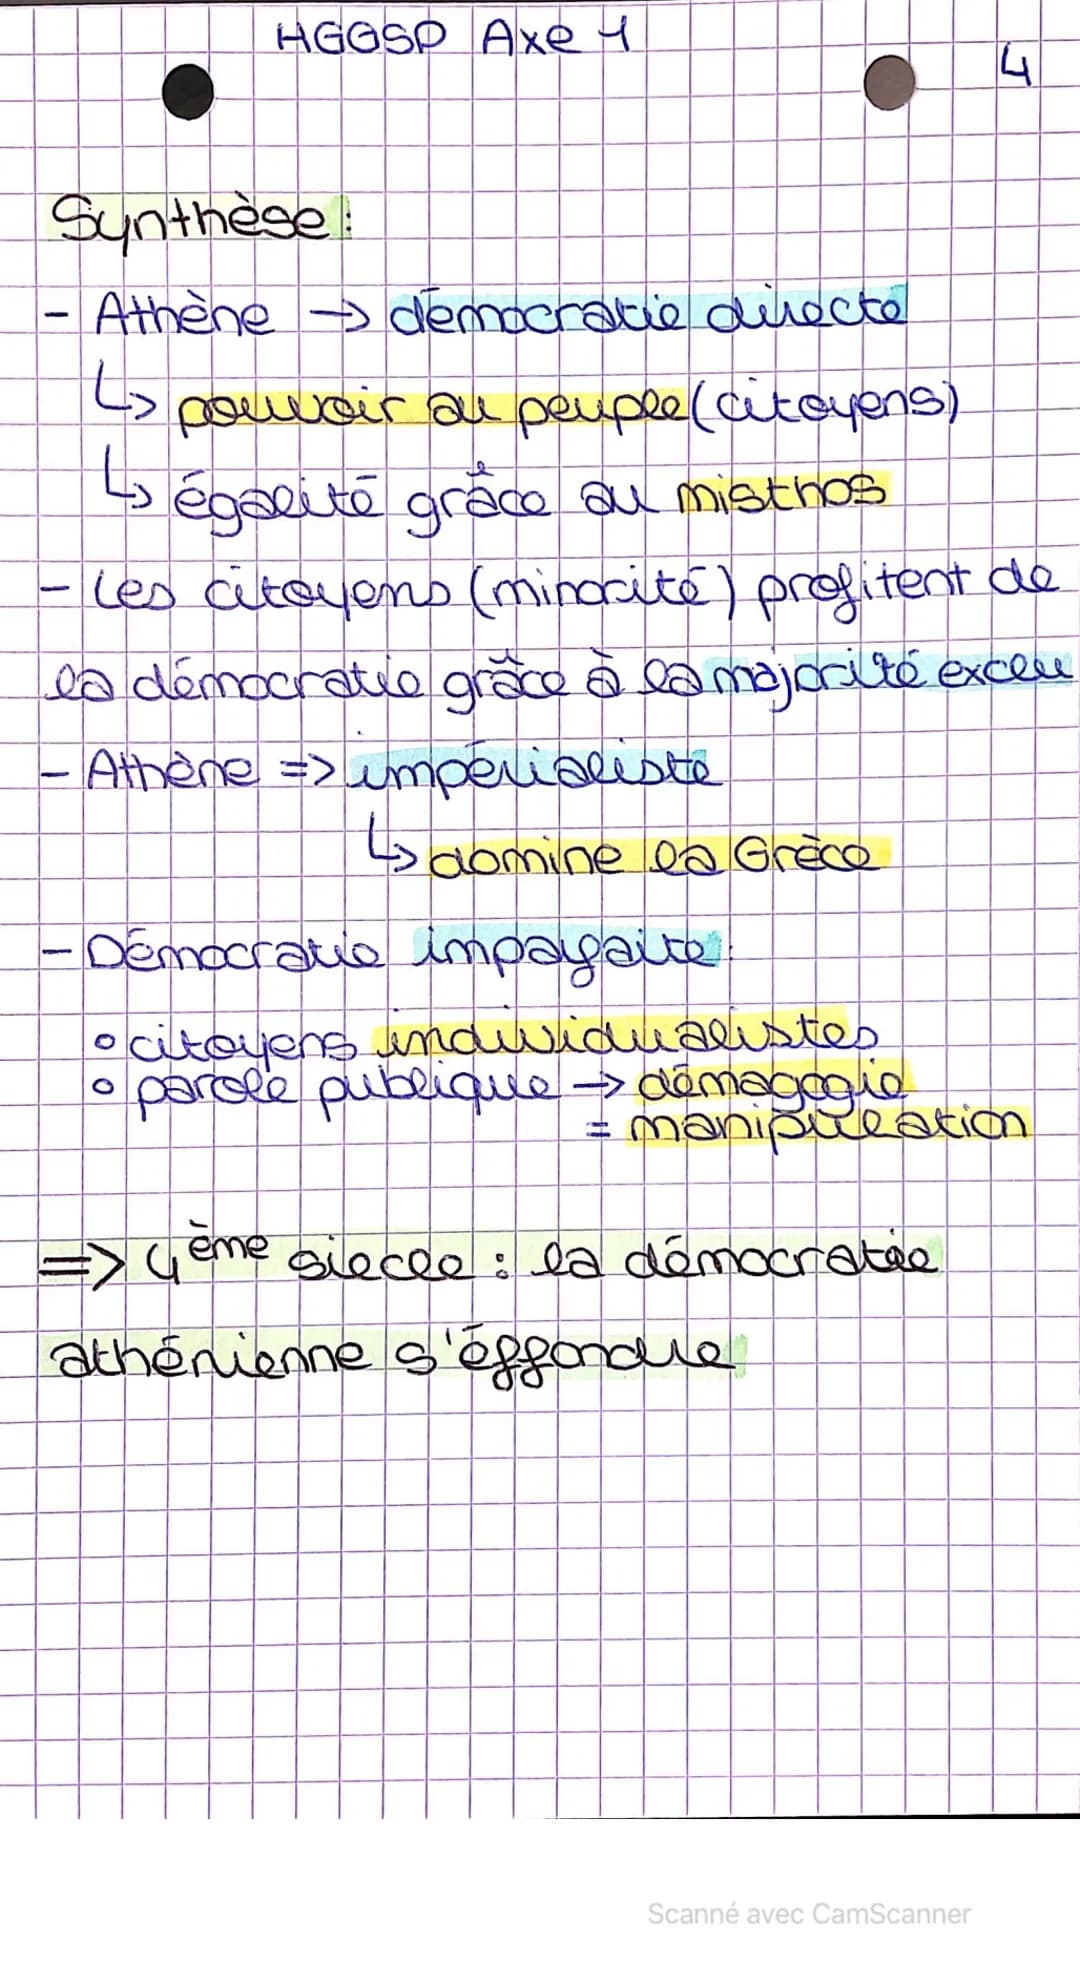 HGGSP Axe 1
4
Synthèse:
- Athène → démocratie directe
↳ pouvoir au peuple (citoyens)
↳ égalité grâce au misthos
- Les citoyens (minorité) profitent de
la démocratie grâce à la majorité exclu
- Athène => impérialiste
↳ domine la Grèce
- Démocratie imparfaite:
° citoyens individualistes
° parole publique → démagogie
= manipulation
=> 4ème siecle : la démocratie
athénienne s'éffondre
Scanné avec CamScanner